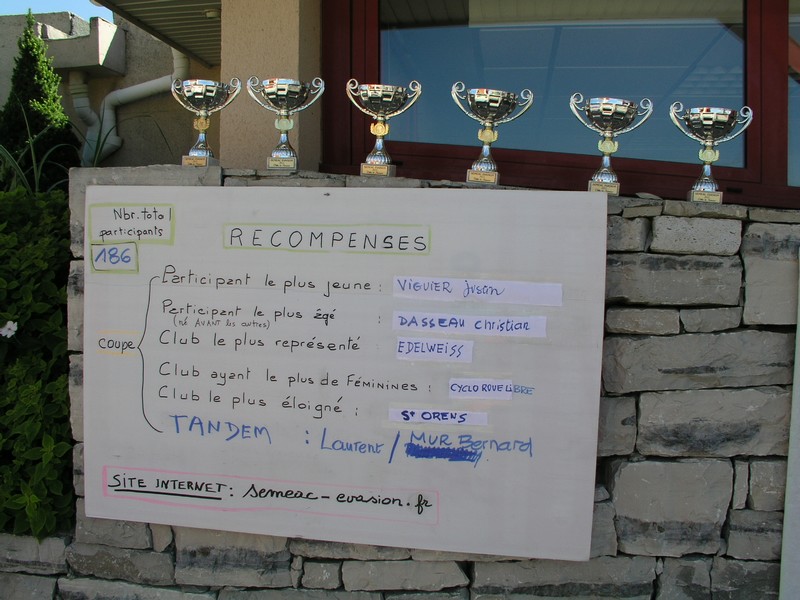 Nbr. total
participants
186
RECOMPENSES
Participant le plus jeune : VIGUIER Jusan
Participant le plus égé : DASSEAU Christian
(né AVANT les autres)
Club le plus représenté : EDELWEISS
COUPE
Club ayant le plus de FÉMININES : CYCLO ROUE LIBRE
Club le plus éloigné : St ORENS
TANDEM : Laurent / MUR Bernard
SITE INTERNET : semeac-evasion.fr